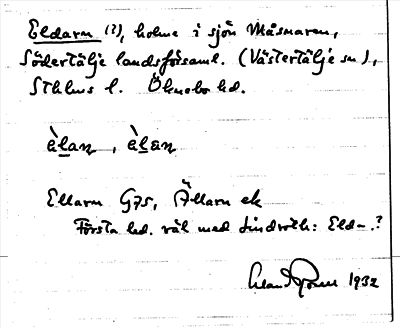 Eldarn (?), holme i sjön Måsnaren,
Södertälje landsförsaml. (Västertälje sn),
Sthlms l. Öknebo hd.
èlan, èlan
Ellarn G75, Ällarn ek
Första led. väl med Lindroth: Eld-.?
1932